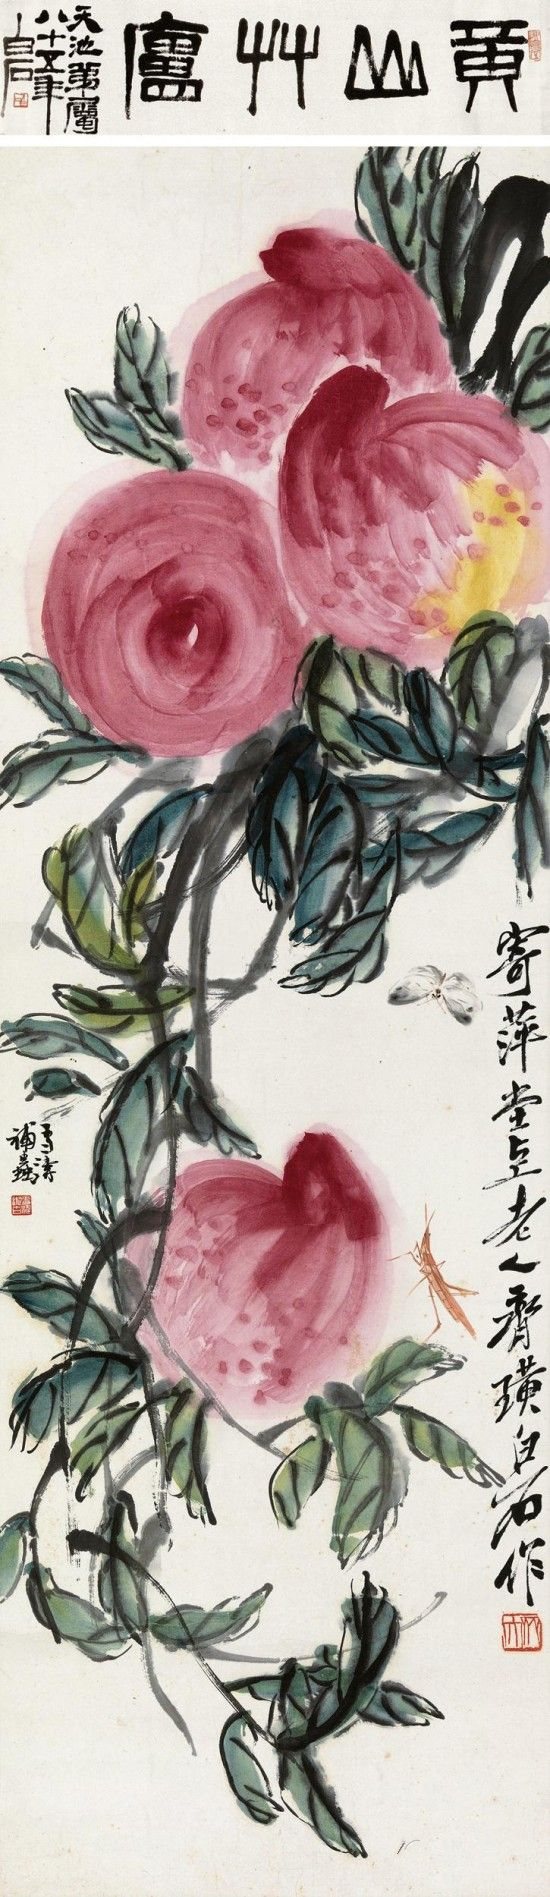 黄山艸廬
天池弟屬
八十五年
白石
寄萍堂上老人齊璜白石作
雪濤
補蟲